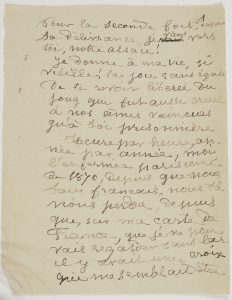 Pour la seconde fois depuis
sa délivrance je viens vers
toi, notre alsace!
Je donne à ma vie, si
vieille! la joie sans égale
De te revoir libérée du
joug qui fut aussi cruel
à nos âmes vaincues
qu'à toi prisonnière
Heure par heure, an-
née par année, mon
Calme
de 1870, depuis que nous,
sans français, nous t'a-
vions perdue, depuis
que, sur ma carte de
France, que je ne pou-
vais regarder sans lar
il y avait une croix
qui me semblait être